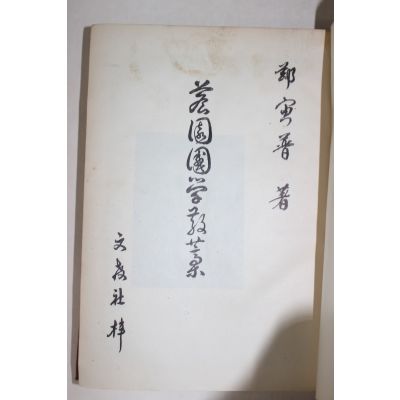 鄭寅普 著
薝園國学散藁
文敎社 梓